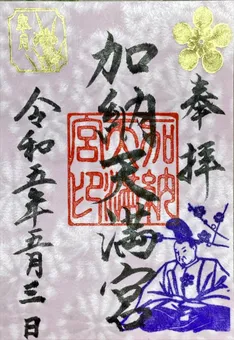 奉拝
加納天満宮
加納天満宮印
令和五年五月三日